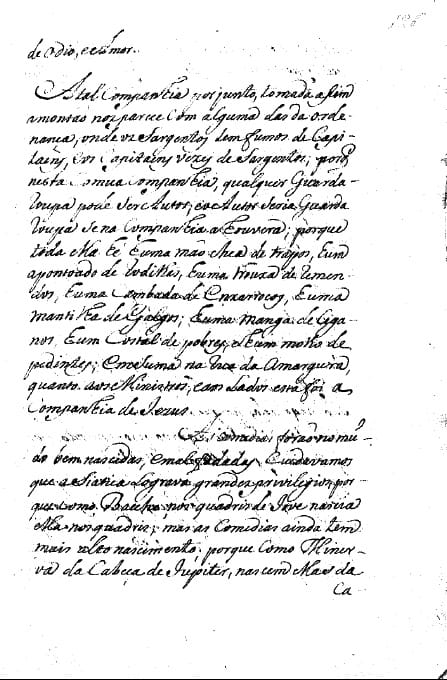 128
de odio, e Amor.
A tal Companhia por junto, tomada asim
amontao nos parece com alguma das da orde-
nança, onde os Sargentos tem fumos de Capi-
taens, e os Capitaens vezes de Sargentos; porq̃
nesta Comua Companhia, qualquer Guarda-
roupa pode ser Autor, e o Autor seria Guarda
roupa se na Companhia a houvera; porque
toda ella he huma mão chea de trapos, hum
apontoado de rodilhas, huma trouxa de remen-
dos, huma Cambada de Enxarrocos, huma
mantilha de Galgos; huma manga de Ciga-
nos, hum Costal de pobres, e hum molho de
pedintes; em huma na Ilea da Amargura,
quanto aos Ministros, e aos Lados esta foi a
Companhia de Jezus.
As Comedias forão no mũ-
do bem nascidas, e mal fadadas. Cuidavamos
que a Siatica lograva grandes privilegios por
que como Baccho nos quadris de Jove nascia
ella nos quadris; mas as Comedias ainda tem
mais alto nascimento; porque como Miner-
va da Cabeça de Jupiter, nascem ellas da
Ca-